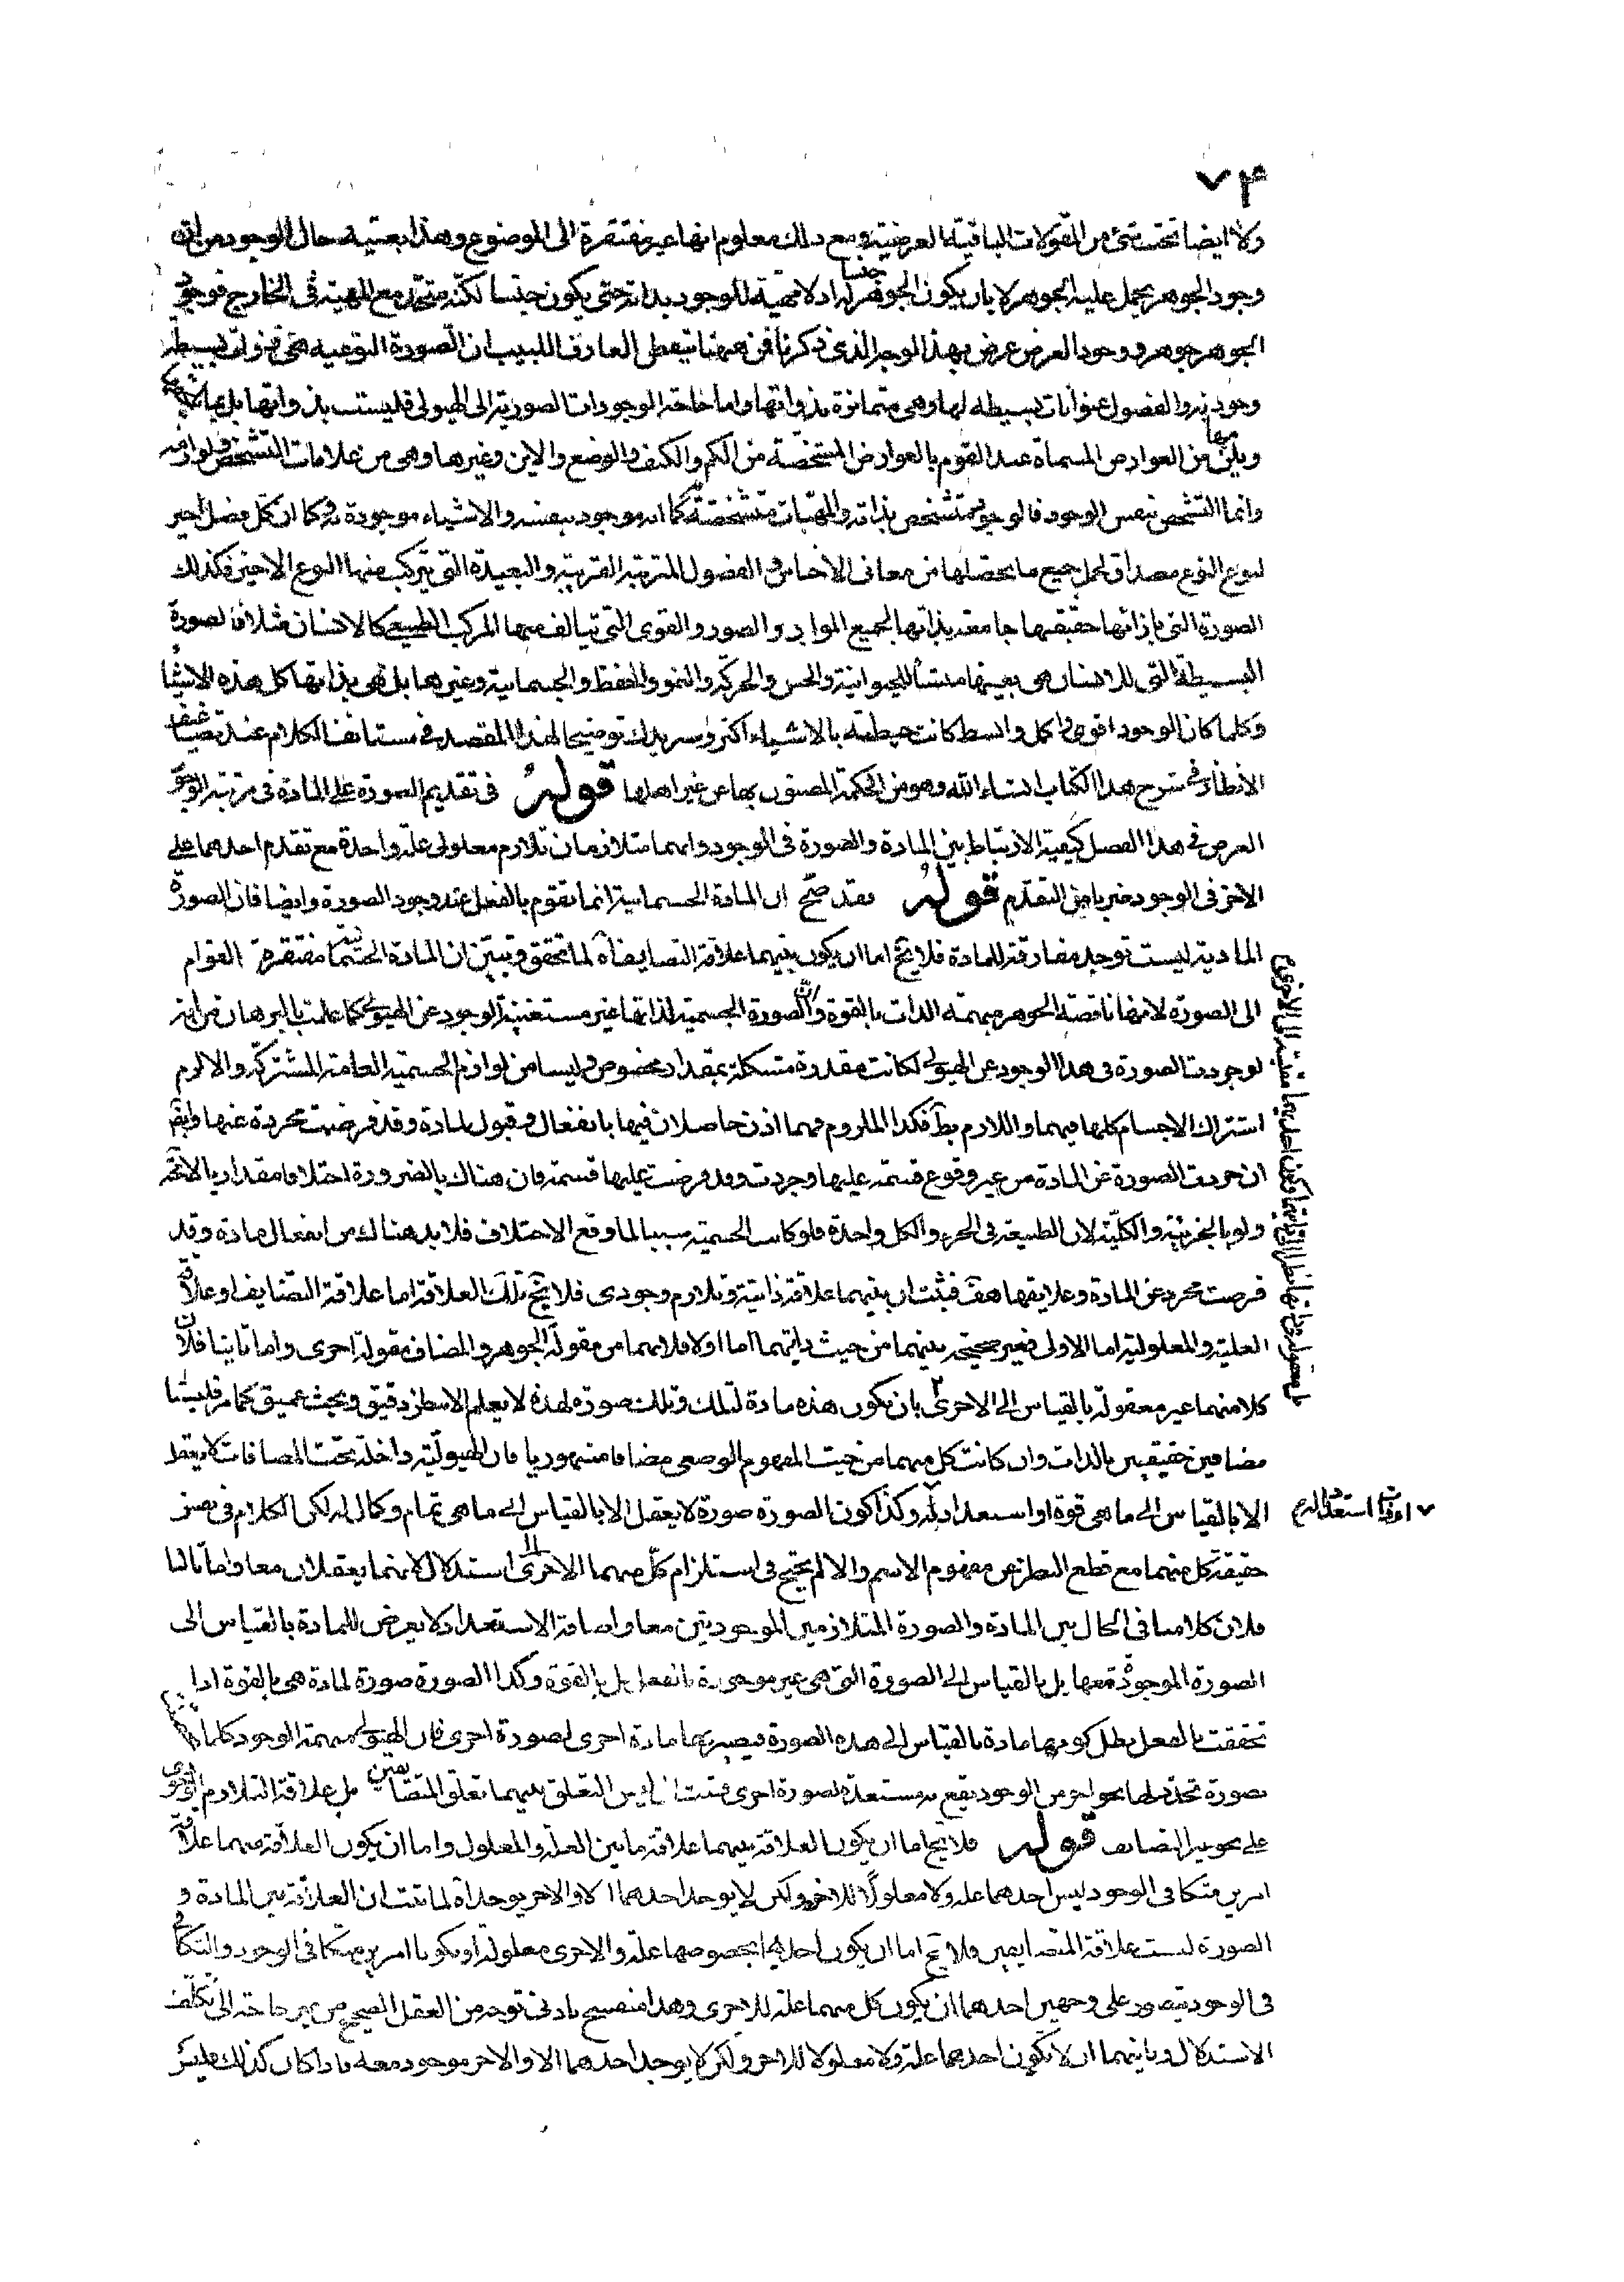 ٧٤
ولا ايضا تحت شئ من المقولات الباقية العرضية ومع ذلك معلوم انها غير مفتقرة الى الموضوع وهذا بعينه حال الوجود من ان
وجود الجوهر يحمل عليه الجوهر لا بان يكون الجوهر جنسا له اذ لا مهية للوجود بذاته حتى يكون جنسا لكنه متحد مع المهية فى الخارج فوجود
الجوهر جوهر ووجود العرض عرض بهذا الوجه الذى ذكرنا فمن ههنا يتفطن العارف اللبيب ان الصورة النوعية هى ذوات بسيطة
وجودية والفصول عنوانات بسيطه لها وهى متمايزة بذواتها واما حاجة الوجودات الصورية الى الهيولى فليست بذواتها بل بما
ويلزمها من العوارض المسماة عند القوم بالعوارض المشخصة من الكم والكيف والوضع والاين وغيرها وهى من علامات التشخص ولوازمه
وانما التشخص بنفس الوجود فالوجود متشخص بذاته والمهيات متشخصة به كما انه موجود بنفسه والاشياء موجودة به وكما ان كل فصل اخير
لنوع النوع مصداق لحمل جميع ما يحصلها من معانى الاجناس والفصول المترتبة القريبة والبعيدة التى يتركب منها النوع الاخير فكذلك
الصورة التى بازائها حقيقتها جامعة بذاتها لجميع المواد والصور والقوى التى يتالف منها المركب الطبيعى كالانسان مثلا فالصورة
البسيطة التى للانسان هى بعينها منشأ للحيوانية والحس والحركة والنمو والحفظ والجسمانية وغيرها بل هى بذاتها كل هذه الاشياء
وكلما كان الوجود اقوى واكمل وابسط كانت حيطته بالاشياء اكثر وسنزيدك توضيحا لهذا المقصد فى مستانف الكلام عند تضاعيف
الانظار فى شرح هذا الكتاب انشاء الله وهو من الحكمة المضنون بها عن غير اهلها قوله فى تقديم الصورة على المادة فى مرتبة الوجود
الغرض فى هذا الفصل كيفية الارتباط بين المادة والصورة فى الوجود وانهما متلازمان تلازم معلولى علة واحدة مع تقدم احدهما على
الاخر فى الوجود ضربا من التقدم قوله فقد صح ان المادة الجسمانية انما تقوم بالفعل عند وجود الصورة وايضا فان الصورة
المادية ليست توجد مفارقة للمادة فلا يخ اما ان يكون بينهما علاقة التضايف اه لما تحقق وتبين ان المادة الجسمانية مفتقرة القوام
الى الصورة لانها ناقصة الجوهر مبهمة الذات بالقوة وان الصورة الجسمية لذاتها غير مستغنية الوجود عن الهيولى كما علمت بالبرهان من انه
لو جردت الصورة فى هذا الوجود عن الهيولى لكانت مقدرة متشكلة بمقدار مخصوص وليسا من لوازم الجسمية العامة المشتركة والا لزم
اشتراك الاجسام كلها فيهما واللازم بط فكذا الملزوم فهما اذن حاصلان فيها بانفعال وقبول لمادة وقد فرضت مجردة عنها وايضا
ان جردت الصورة عن المادة من غير وقوع قسمة عليها وجردت وقد فرضت عليها قسمة فان هناك بالضرورة اختلافا مقداريا لا محة
ولو بالجزئية والكلية لان الطبيعة فى الجزء والكل واحدة فلو كانت الجسمية سببا لما وقع الاختلاف فلا بد هناك من انفعال مادة وقد
فرضت مجرد عن المادة وعلايقها هف فثبت ان بينهما علاقة ذاتية وتلازم وجودى فلا يخ تلك العلاقة اما علاقة التضايف او علاقة
العلية والمعلولية اما الاولى فغير صحيحة بينهما من حيث ذاتيهما اما اولا فلانهما من مقولة الجوهر والمضاف مقولة اخرى واما ثانيا فلان
كلا منهما غير معقولة بالقياس الى الاخرى بان يكون هذه مادة لتلك وتلك صورة لهذه لا يعلم الا بنظر دقيق وبحث عميق كما مر فليستا
مضافين حقيقيين بالذات وان كانت كل منهما من حيث المفهوم الوصفى مضافا مشهوريا فان الهيولية داخلة تحت المضافات لا يعقل
الا بالقياس الى ما هى قوة او استعداد له وكذا كون الصورة صورة لا يعقل الا بالقياس الى ما هى تمام وكمال له لكن الكلام فى نفس
حقيقة كل منهما مع قطع النظر عن مفهوم الاسم والا لم يحتج فى استلزام كل منهما الاخرى الى استدلال لانهما يعقلان معا واما ثالثا
فلان كلامنا فى الحال بين المادة والصورة المتلازمين الموجودتين معا واضافة الاستعداد لا يعرض للمادة بالقياس الى
الصورة الموجودة معها بل بالقياس الى الصورة التى هى غير موجودة بالفعل بل بالقوة وكذا الصورة صورة لمادة هى بالقوة اذا
تحققت بالفعل بطل كونها مادة بالقياس الى هذه الصورة فيصير بها مادة اخرى لصورة اخرى فان الهيولى مبهمة الوجود كلما
بصورة تحدث لها نحو اخر من الوجود يقع به مستعدة لصورة اخرى فثبت ان ليس التعلق بينهما تعلق المتضايفين بل علاقة التلازم الوجودى
على نحو غير التضايف قوله فلا يخ اما ان يكون العلاقة بينهما علاقة ما بين العلة والمعلول واما ان يكون العلاقة بينهما علاقة
امرين متكافى الوجود ليس احدهما علة ولا معلولا للاخر ولكن لا يوجد احدهما الا والاخر يوجد اه لما ثبت ان العلاقة بين المادة و
الصورة ليست علاقة المتضايفين فلا يخ اما ان يكون احدهما بخصوصها علة والاخرى معلولة او يكونا امرين متكافى الوجود والتكافؤ
فى الوجود يتصور على وجهين احدهما ان يكون كل منهما علة للاخرى وهذا منفسخ بادنى توجه من العقل الصحيح من غير حاجة الى تكلف
الاستدلال وثانيهما ان لا يكون احدهما علة ولا معلولا للاخر ولكن لا يوجد احدهما الا والاخر موجود معه فاذا كان كذلك فليس